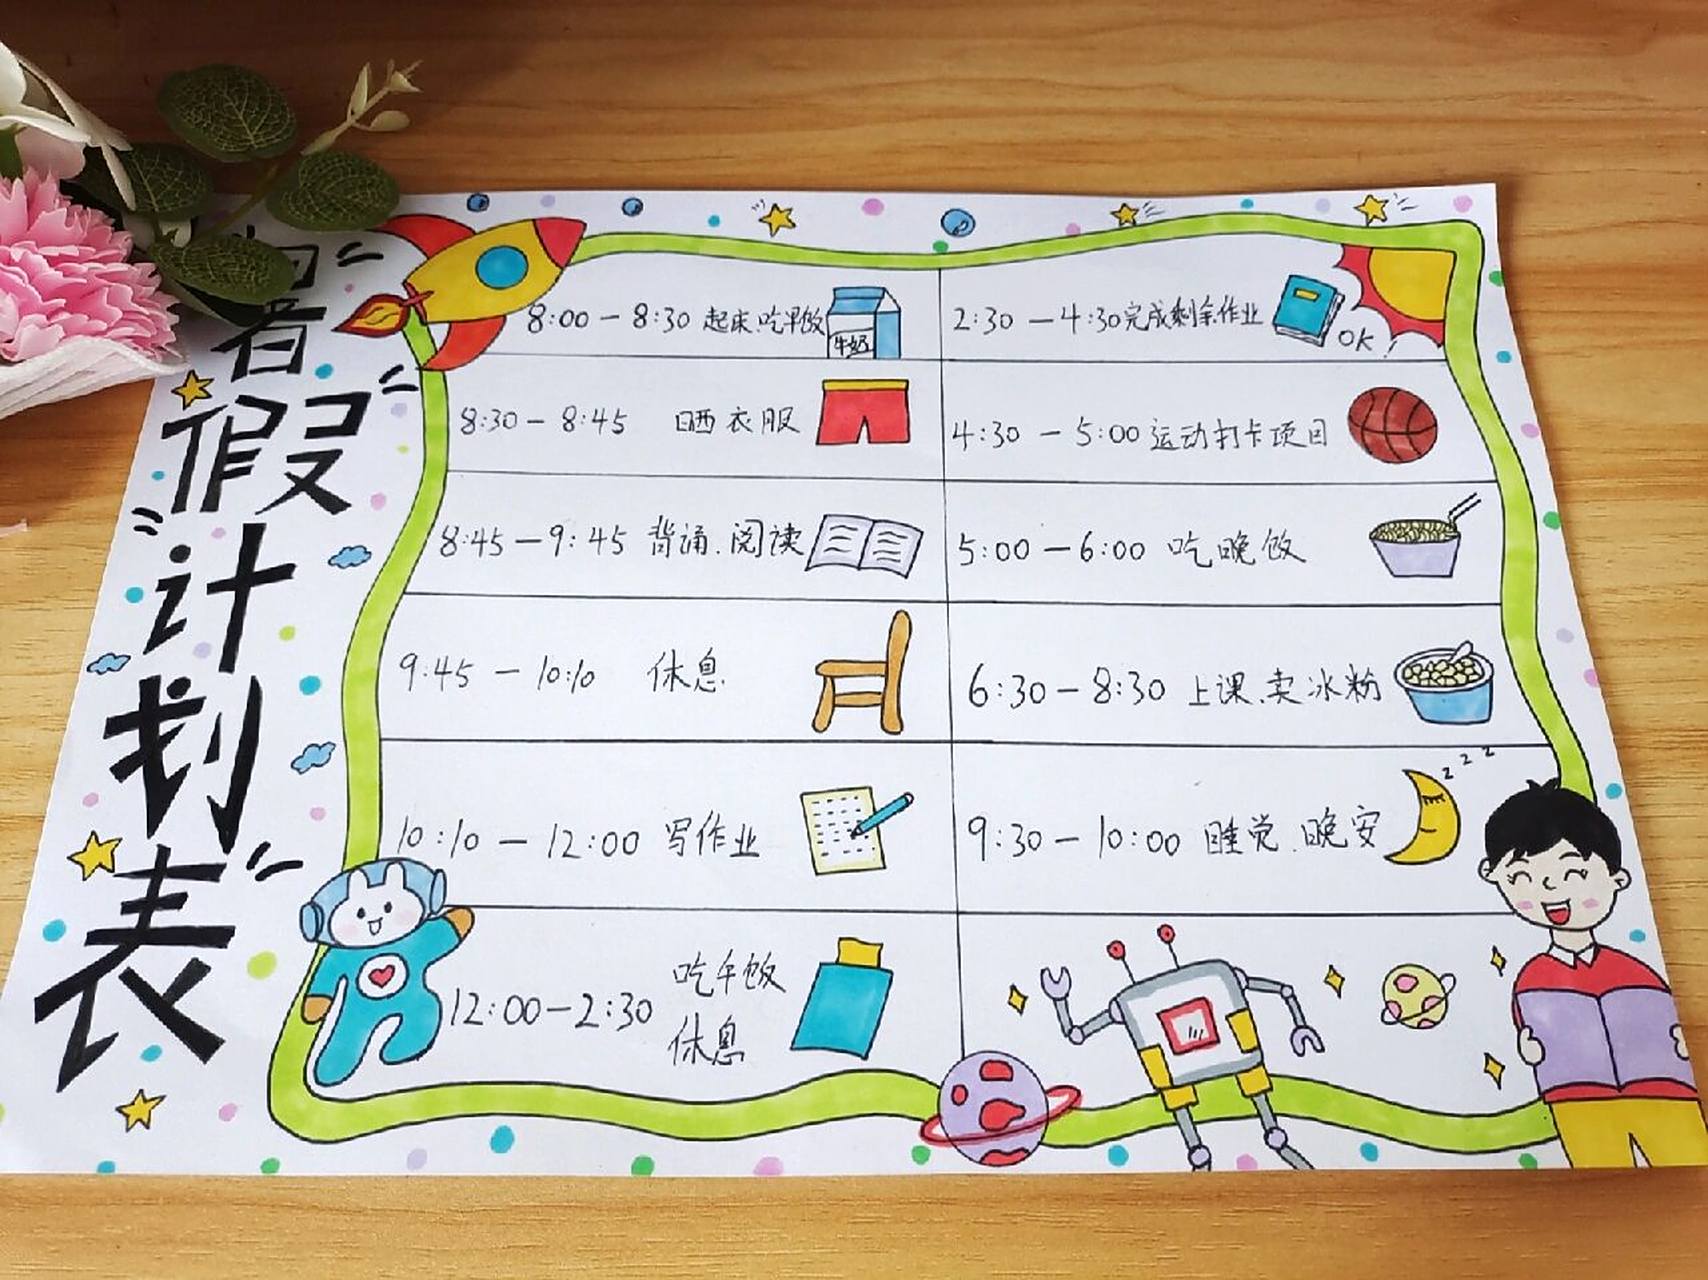 暑假计划表
8:00 — 8:30 起床.吃早饭
牛奶
8:30 — 8:45 晒衣服
8:45 — 9:45 背诵.阅读
9:45 — 10:10 休息
10:10 — 12:00 写作业
12:00 — 2:30 吃午饭
休息
2:30 — 4:30 完成剩余作业
OK!
4:30 — 5:00 运动打卡项目
5:00 — 6:00 吃晚饭
6:30 — 8:30 上课.卖冰粉
9:30 — 10:00 睡觉.晚安
z z z